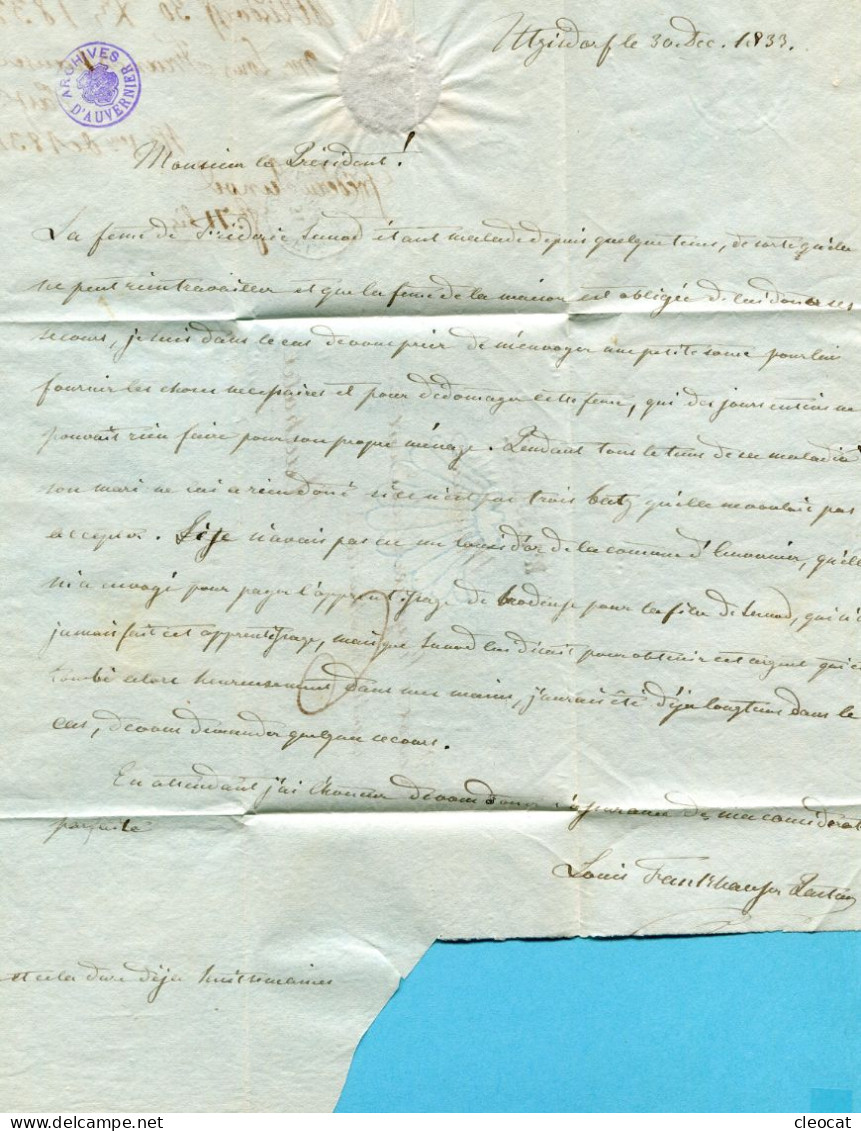 Utzisdorf le 30. Dec. 1833.
ARCHIVES D'AUVERNIER
Monsieur le Président!
La feme de Fréderic Junod étant malade depuis quelque tems, de sorte qu'elle
ne peut rein travailler et que la feme de la maison est obligée de lui doner ses
secours, je suis dans le cas de vous prier de m'envoyer une petite some pour lui
fournir les choses necessaires et pour dédomager cette feme, qui des jours entiers ne
pouvait rien faire pour son propre ménage. Pendant tous le tems de sa maladie
son mari ne lui a rien doné si ce n'est que trois batz qu'elle ne voulait pas
accepter. Si je n'avais pas eu un Louis d'or de la comune d'Auvernier, qu'elle
m'a envoyé pour payer l'apprentissage de brodeuse pour la fille de Junod, qui n'a
jamais fait cet apprentissage, mais que Junod lui disait pour obtenir cet argent qui est
tombé alors heureusement dans mes mains, j'aurais été déja longtems dans le
cas, de vous demander quelque secours.
En attendant j'ai l'honeur de vous doner l'assurance de ma considerat
parfaite
Louis Fankhauser
et cela dure déja huit semaines
cleocat